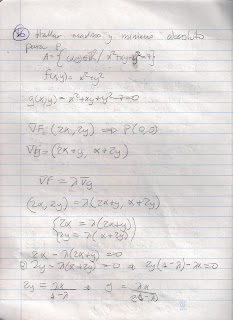 36 Hallar maximo y minimo absoluto
para f
A = { (x,y) ∈ R² / x²+xy+y²=7 }
f(x,y) = x²+y²
g(x,y) = x²+xy+y²-7=0
∇F = (2x, 2y) ⇒ P(0,0)
∇g = (2x+y, x+2y)
∇F = λ∇g
(2x, 2y) = λ(2x+y, x+2y)
{ 2x = λ(2x+y)
2y = λ(x+2y)
2x - λ(2x+y) = 0
2y - λ(x+2y) = 0 → 2y(1-λ) - λx = 0
2y = λx/(1-λ) → y = λx/2(1-λ)